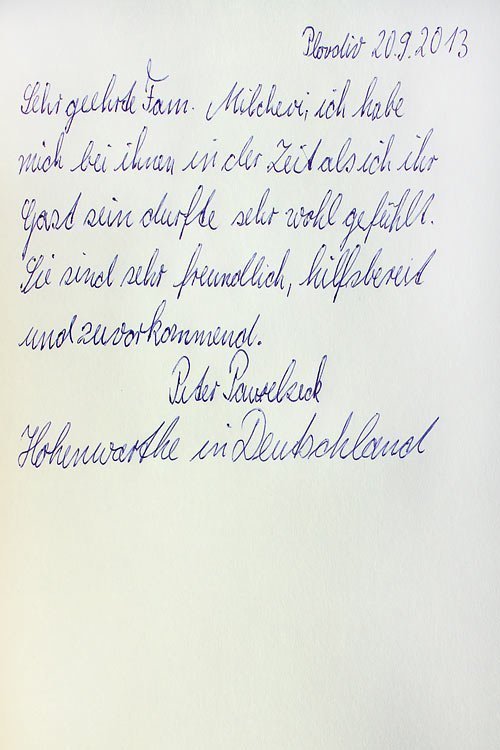 Plovdiv 20.9.2013
Sehr geehrte Fam. Milchevi, ich habe
mich bei ihnen in der Zeit als ich ihr
Gast sein durfte sehr wohl gefühlt.
Sie sind sehr freundlich, hilfsbereit
und zuvorkommend.
Peter
Hohenwarthe in Deutschland